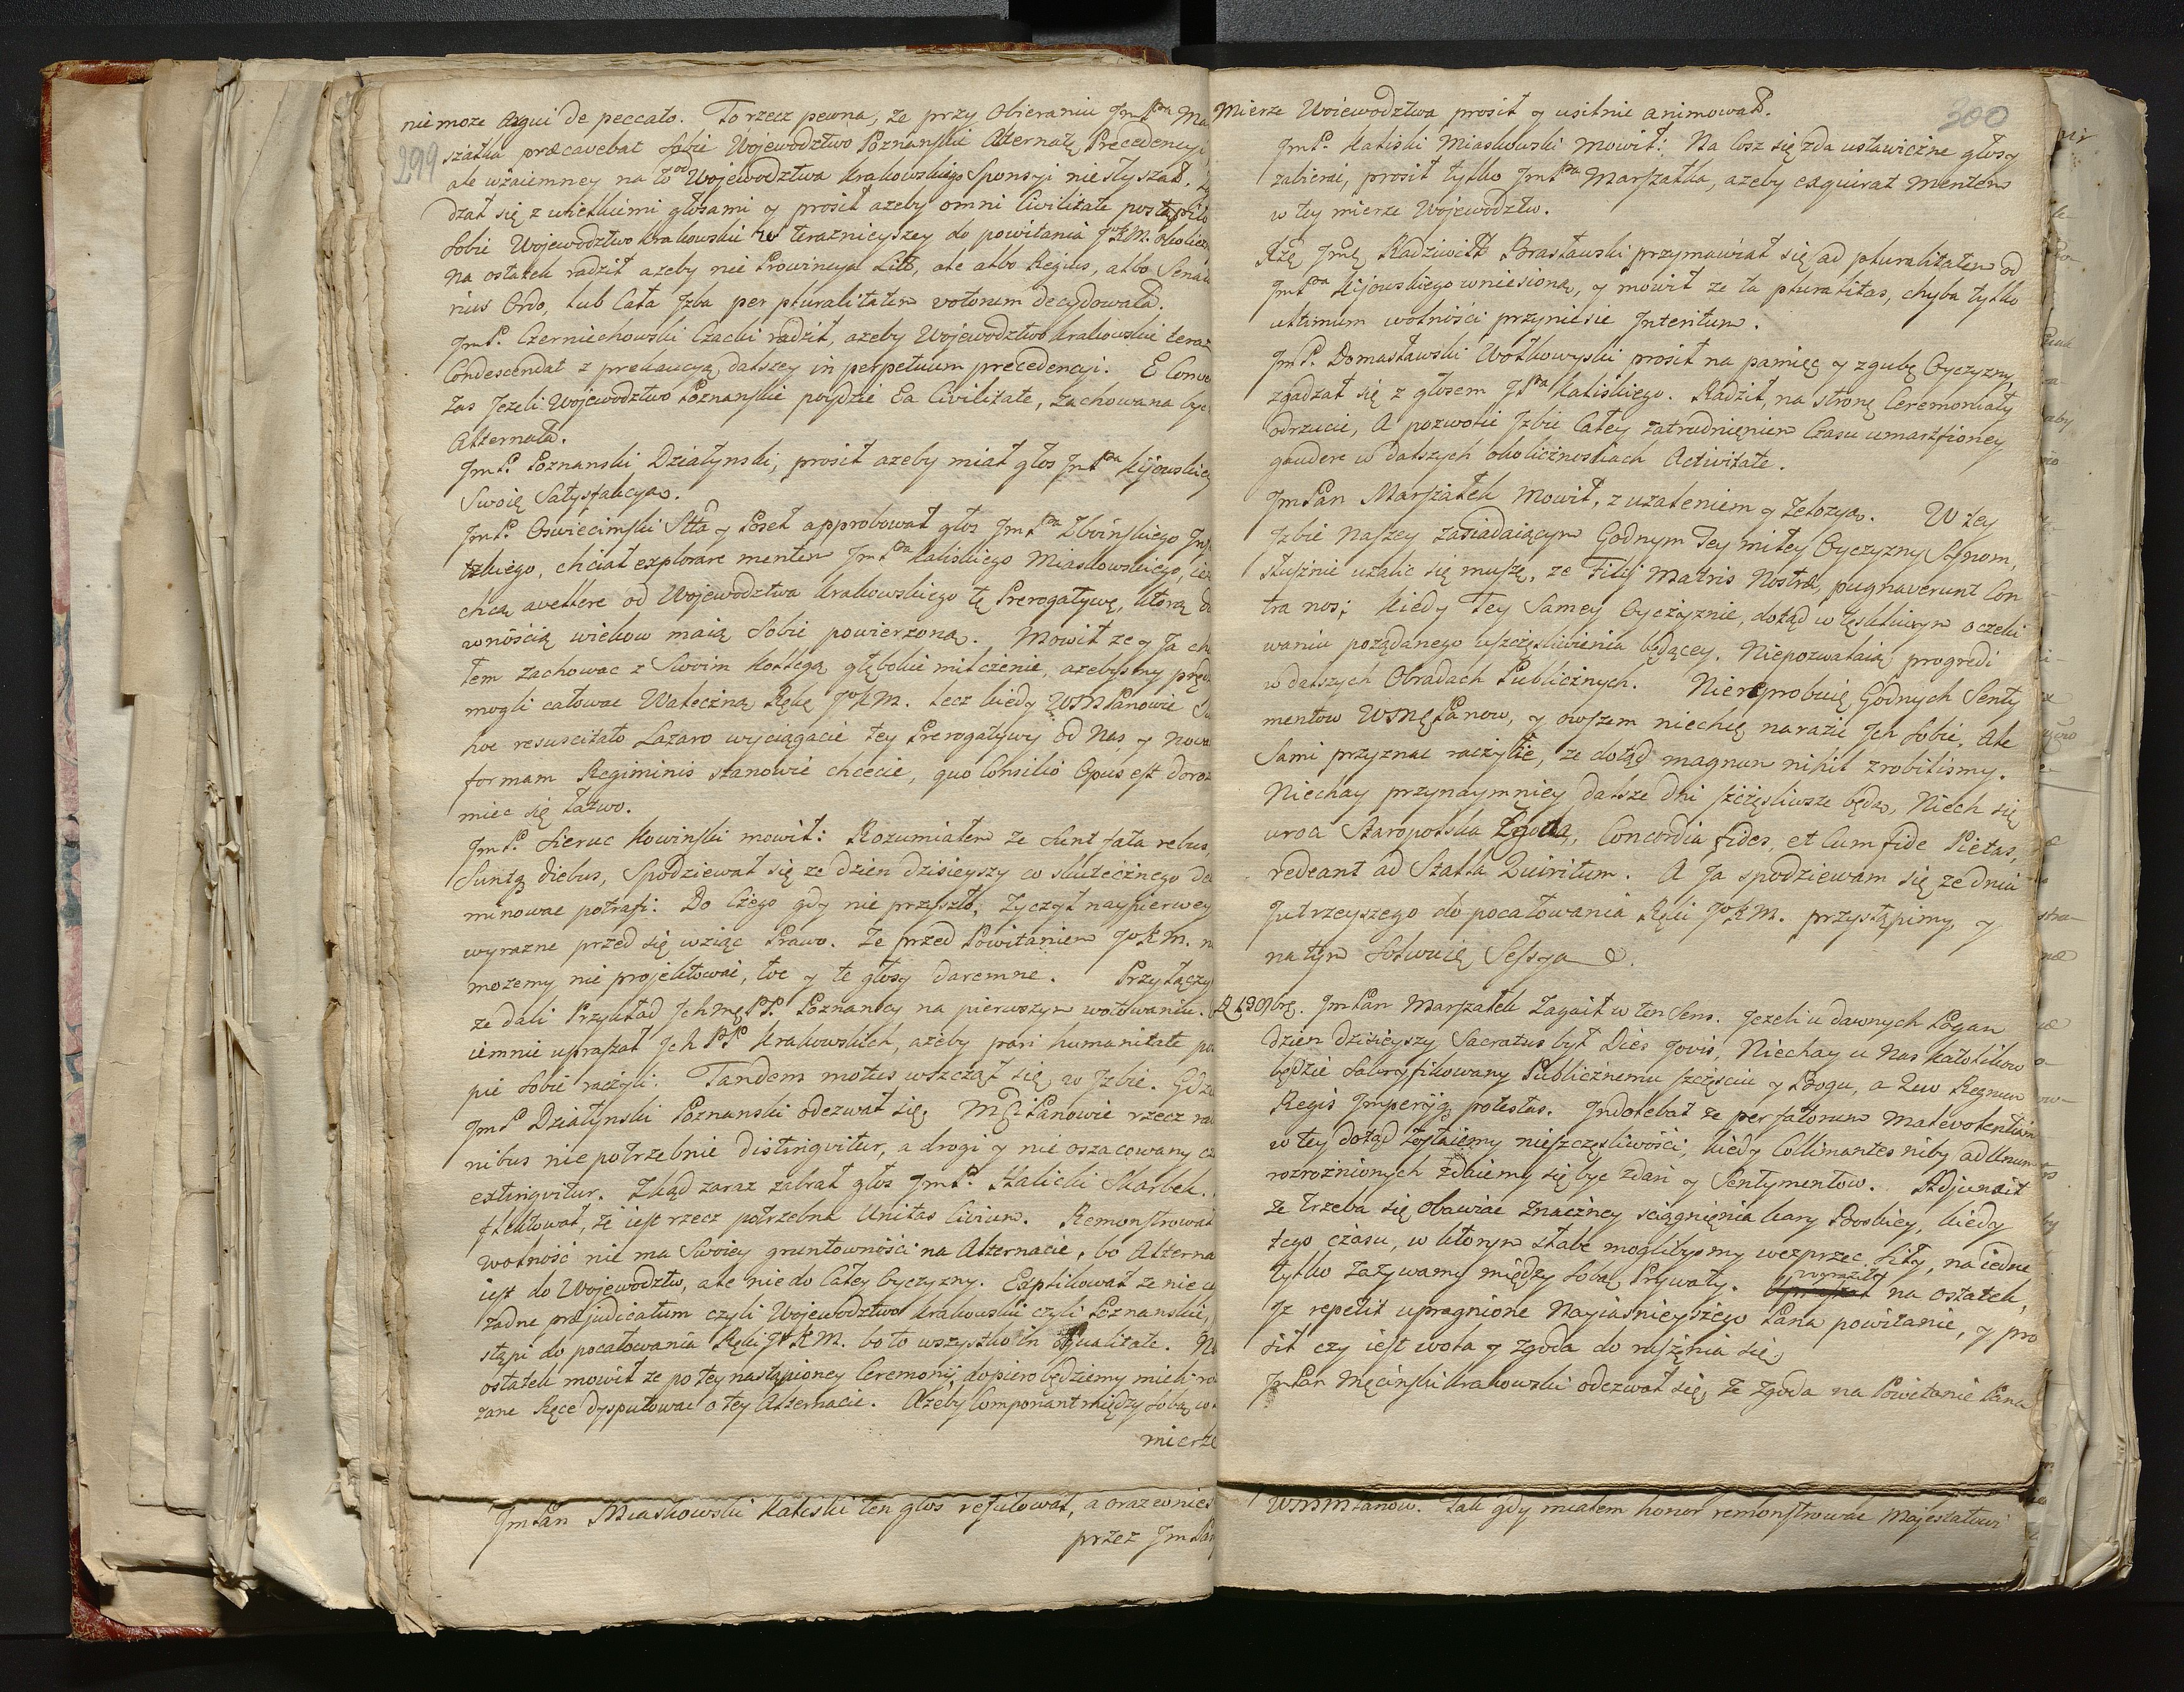 299
nie moze argui de peccato. To rzecz pewna, ze przy obieraniu JmPna Ma
szałka præcavebat sobie Wojewodztwo Poznanskie Alternatę Precedencyi
ale wzaiemney na to od Wojewodztwa Krakowskiego Sponsyi nie słyszał.
dzał się z wielkiemi głosami y prosił azeby omni Civilitate postąpiło
sobie Wojewodztwo Krakowskie w teraznieyszey do powitania JoKM. okolicz
na ostatek radził azeby nie Prowincya Litt, ale albo Regius, albo Senato
rius Ordo, lub Cała Jzba per pluralitatem votorum decydowała.
JmP. Czerniechowski Czacki radził, azeby Wojewodztwo Krakowskie teraz
Condescendat z prekaucyą dalszey in perpetuum precedencyi. E Conve
zas Jezeli Wojewodztwo Poznanskie poydzie Ea Civilitate, zachowana być
Alternata.
JmP. Poznanski Działynski, prosił azeby miał głos JmPna Kijowskiey
Swoię Satysfakcyą.
JmP. Oswiecimski Stta y Poseł approbował głos JmPna Zboinskiego
tzkiego, chciał explorare mentem JmPna Kaliskiego Miaskowskiego, iez
chcą avellere od Wojewodztwa Krakowskiego tę Prerogatywę, ktorą da
wnością wiekow maią sobie powierzoną. Mowił ze y Ja ch
łem zachować z Swoim Kollegą głębokie milczenie, azebysmy pręd
mogli całować Waleczną Rękę JoKM. lecz kiedy WMPanowie
hoc resuscitato Lazaro wyciągacie tey Prerogatywy od Nas y nowa
formam Regiminis stanowić chcecie, quo Consilio Opus est doroz
miec się łatwo.
JmP. Sieruc Kowinski mowił: Rozumiałem ze sunt fata rebus,
Suntq diebus, Spodziewał się ze dzien dzisieyszy co skutecznego de
minować potrafi. Do Czego gdy nie przyszło, zyczył naypierwey
wyrazne przed się wziąć Prawo. Ze przed Powitaniem JoKM. n
mozemy nic projektować, toć y te głosy daremne. Przyłączył
ze dali Przykład JchMę PP. Poznancy na pierwszym wotowaniu.
iemnie upraszał Jch PP Krakowskich, azeby pari humanitate po
pić sobie raczyli. Tandem motus wszczął się w Jzbie. Gdzie
JmP Działynski Poznanski odezwał się, MPanowie rzecz ra
nibus niepotrzebnie distingvitur, a drogi y nie oszacowany cz
extingvitur. Zkąd zaraz zabrał głos JmP. Halicki Skarbek.
flektował, że iest rzecz potrzebna Unitas Civium. Remonstrował
wolność nie ma Swoiey gruntowności na Alternacie, bo Alterna
iest do Wojewodztw, ale nie do Całey Oyczyzny. Explikował ze nie
zadne præjudicatum czyli Wojewodztwo Krakowskie czyli Poznanskie,
stąpi do pocałowania Ręki JoKM. bo to wszystko in Equalitate. Na
ostatek mowił ze po tey nastąpioney Ceremonij, dopiero będziemy mieli ro
zane Ręce dysputować o tey Alternacie. Azeby Componant między sobą w
mierze
JmPan Miaskowski Kaliski ten głos refutował, a oraz wnies
przez JmPan
300
Mierze Woiewodztwa prosił y usilnie animował.
JmP. Kaliski Miaskowski mowił: Na Cosz się zda ustawiczne głosy
zabierać, prosił tylko JmPna Marszałka, azeby exquirat mentem
w tey mierze Wojewodztw.
Xżę Jmę Radziwiłł Brasławski przymawiał się ad pluralitatem od
JmPna Kijowskiego wniesioną, y mowił ze ta pluralitas, chyba tylko
ultimum wolności przyniesie Interitum.
JmP. Domasławski Wołkowyski prosił na pamięć y zgubę Oyczyzny
zgadzał się z głosem JPna Kaliskiego. Radził, na stronę Ceremoniały
odrzucić, A pozwolić Jzbie Całey zatrudnieniem Czasu umarzfioney
gaudere w dalszych okolicznościach Activitate.
JmPan Marszałek Mowił, z uzaleniem y Zelozyą. W tey
Jzbie Naszey zasiadaiącym Godnym Tey miłey Oyczyzny Synom,
słusznie uzalić się muszę, ze Filij Matris Nostræ, pugnaverunt Con
tra nos; kiedy Tey Samey Oyczyznie, dotąd w tęskliwym oczeki
waniu poządanego uszczęśliwienia będącey. Niepozwalaią progredi
w dalszych Obradach Publicznych. Niereprobuię, Godnych Senty
mentow WMMPanow, y owszem niechcę narazić Jch sobie. Ale
Sami przyznać raczycie, ze dotąd magnum nihil zrobilismy.
Niechay przynaymniey dalsze dni szczęsliwsze będą, Niech się
wroci Staropolska Zgoda, Concordia fides, et Cum fide Pietas,
redeant ad Stalla Quiritum. A Ja spodziewam się ze dnia
Jutrzeyszego do pocałowania Ręki JoKM. przystąpimy y
na tym Solwuię Sessyą.
D. 19 9brę. JmPan Marszałek Zagaił w ten Sens. Jezeli u dawnych Pogan
dzien dzisieyszy Sacratus był Dies Jovis, Niechay u Nas Katolikow
będzie sakryfikowany Publicznemu szczęściu y Bogu, a quo Regnum
Regis Imperijq potestas. Indolebat ze per fatorum Malevolentiam
w tey dotąd zostaiemy nieszczęśliwości, kiedy Collimantes niby ad Unum
rozroznionych zdaiemy się być zdań y Sentymentow. Adjunxit
ze trzeba się obawiać znaczney sciągnięnia kary Boskiey, kiedy
tego czasu, w ktorym słabe moglibysmy wezprzeć siły, na iedne
tylko zazywamy między sobą Prywaty. wyraził na ostatek,
Jz repetit upragnione Nayiasnieyszego Pana powitanie, y pro
sił czy iest wola y zgoda do ruszenia się,
JmPan Męcinski Krakowski odezwał się, Ze zgoda na Powitanie Pana
WMMPanow. Tak gdy miałem honor remonstrować Majestatowi